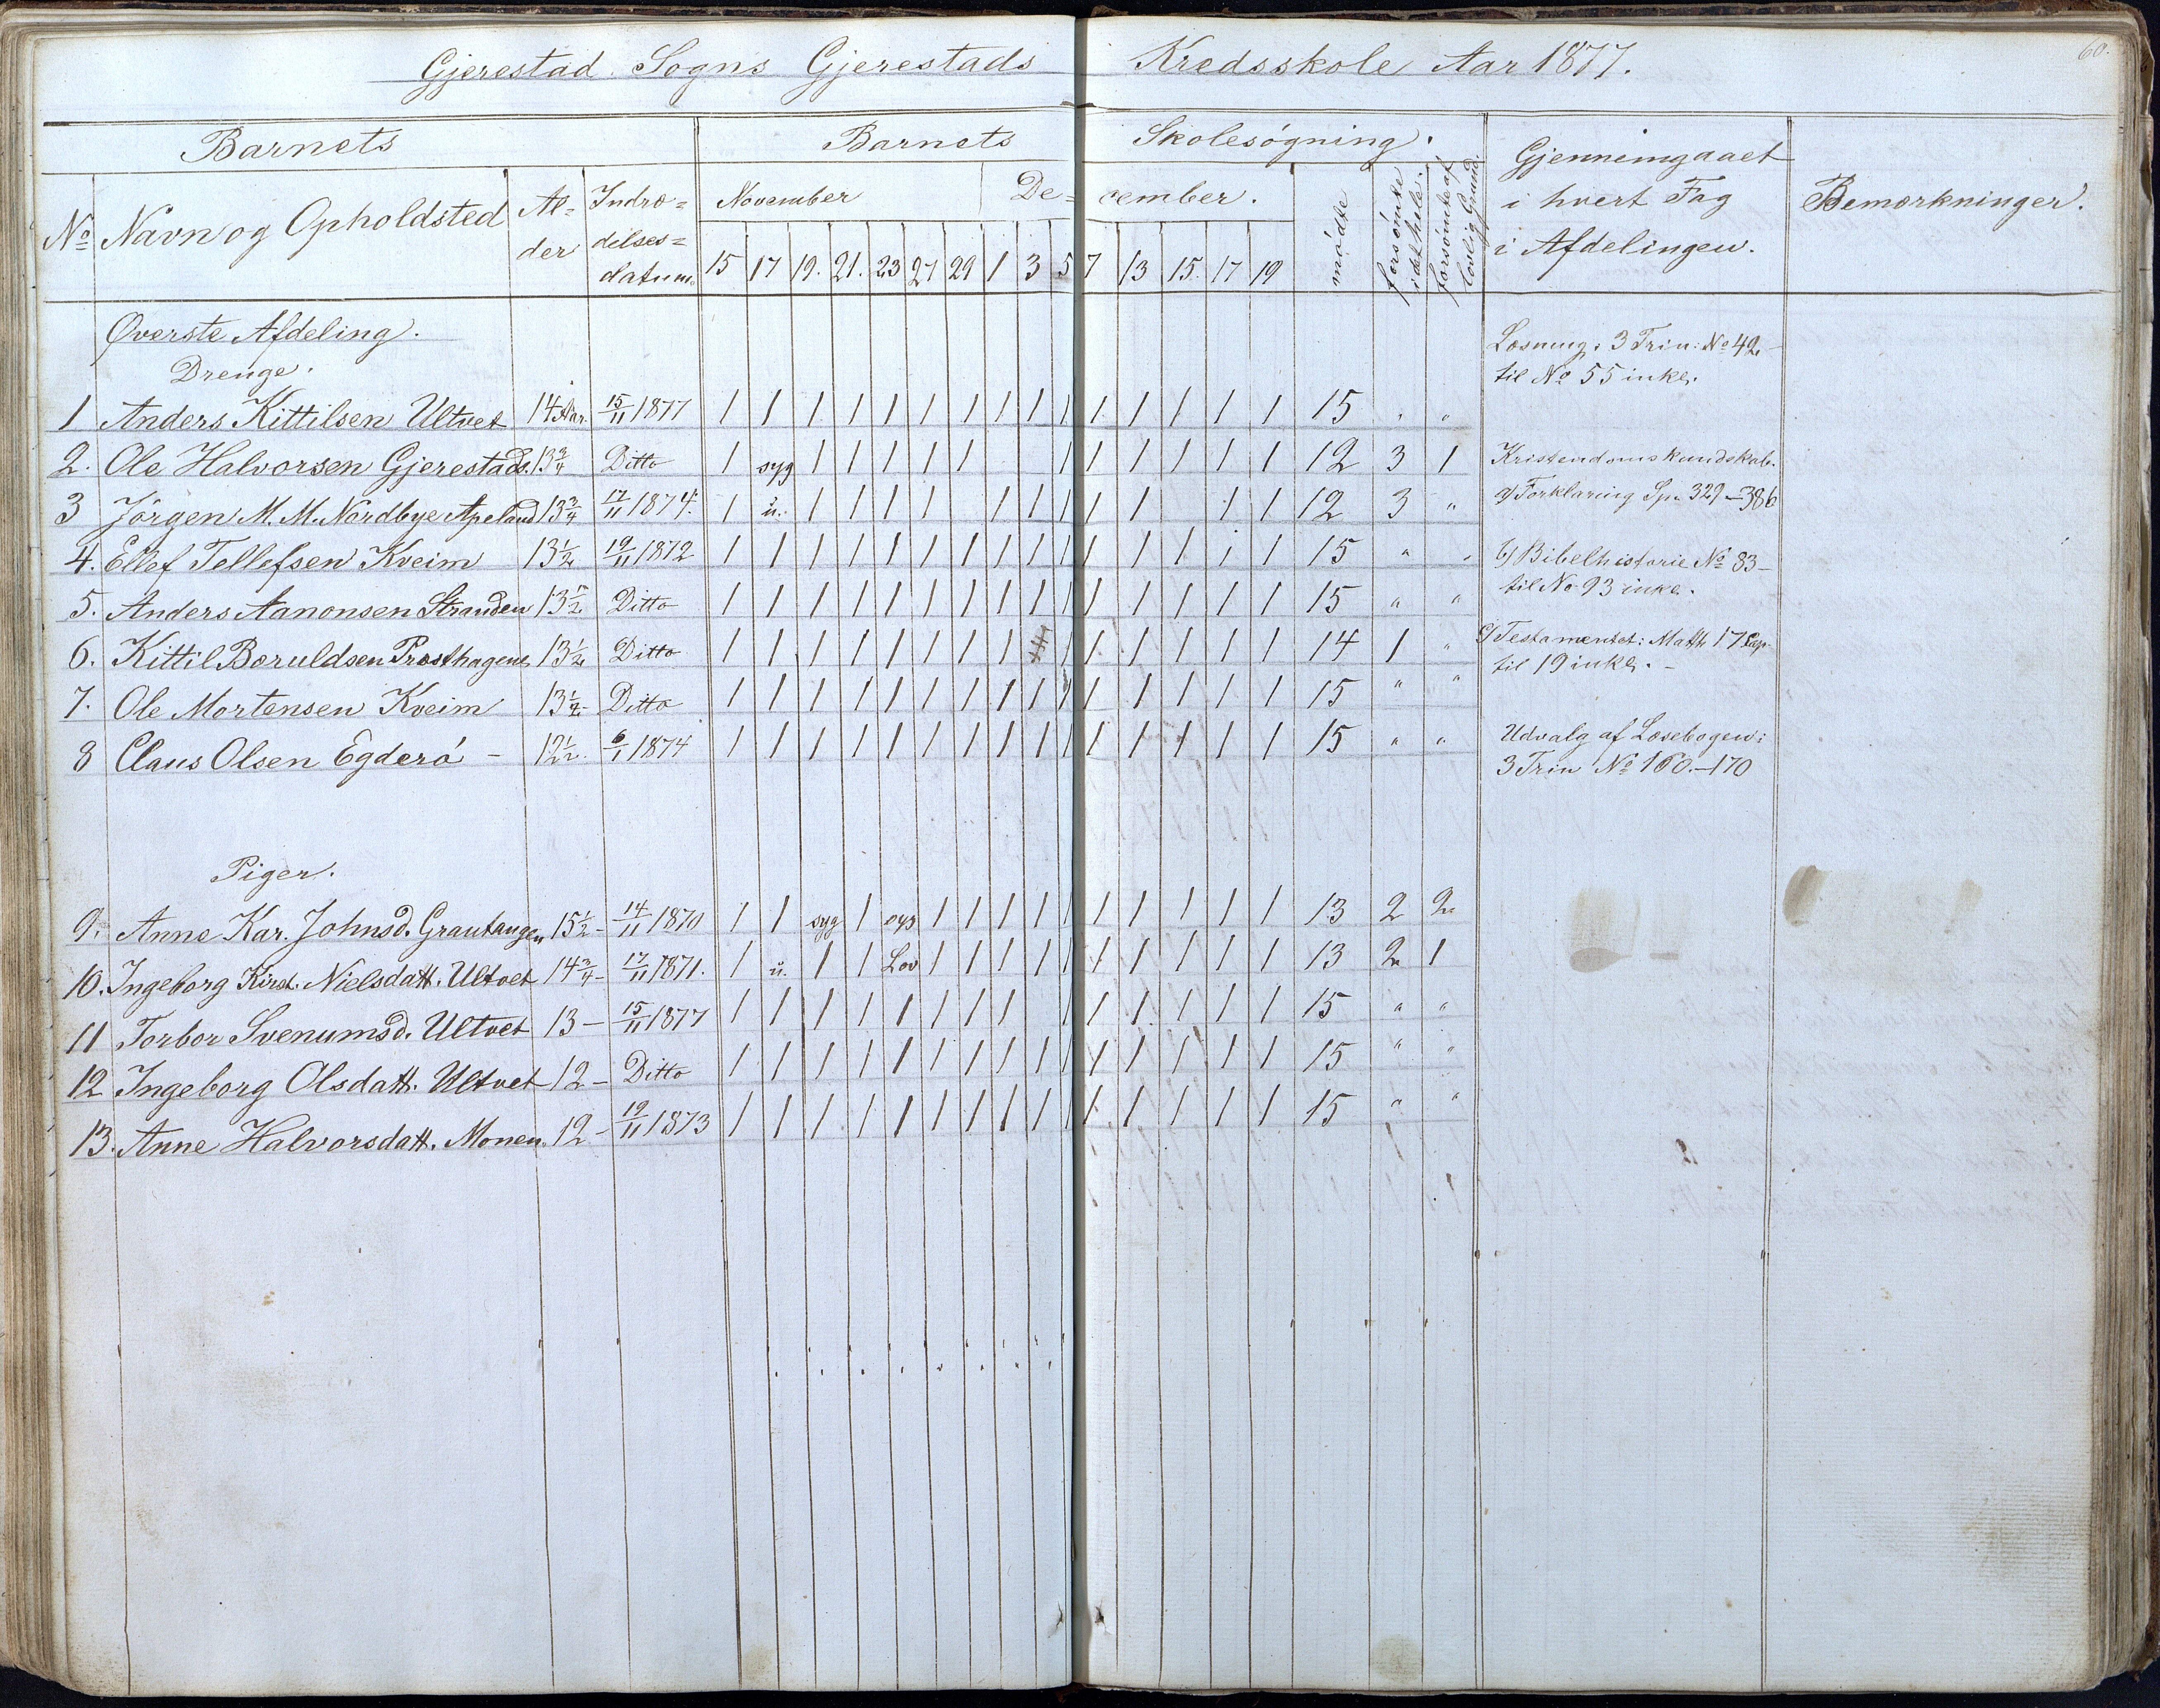 60.
Gjerestad Sogns Gjerestads Kredsskole Aar 1877.
Barnets Barnets Skolesøgning. Gjennemgaaet i hvert Fag i Afdelingen. Bemærkninger.
No Navn og Opholdsted Al=der Indtræ=delses=datum. November De=cember. mødte forsømte i det hele. forsømte af lovlig Grund.
15 17 19. 21. 23 27 29 1 3 5 7 13 15. 17 19
Øverste Afdeling.
Drenge.
1 Anders Kittilsen Ultvet 14 Aar. 15/11 1877 1 1 1 1 1 1 1 1 1 1 1 1 1 1 1 15 " "
2. Ole Halvorsen Gjerestads. 13 3/4 Ditto 1 syg 1 1 1 1 1 1 1 1 1 1 1 12 3 1
3 Jørgen M. M. Nordbye Apeland 13 3/4 17/11 1874. 1 u. 1 1 1 1 1 1 1 1 1 1 1 12 3 "
4. Ellef Tellefsen Kveim 13 1/2 19/11 1872 1 1 1 1 1 1 1 1 1 1 1 1 1 1 1 15 " "
5. Anders Aanonsen Stranden 13 1/2 Ditto 1 1 1 1 1 1 1 1 1 1 1 1 1 1 1 15 " "
6. Kittil Boruldsen Præsthagen 13 1/2 Ditto 1 1 1 1 1 1 1 1 1 1 1 1 1 1 14 1 "
7. Ole Mortensen Kveim 13 1/2 Ditto 1 1 1 1 1 1 1 1 1 1 1 1 1 1 1 15 " "
8 Claus Olsen Egderø - 12 1/2. 6/1 1874 1 1 1 1 1 1 1 1 1 1 1 1 1 1 1 15 " "
Piger.
9. Anne Kar. Johnsd. Grautangen 15 1/2 - 14/11 1870 1 1 syg 1 syg 1 1 1 1 1 1 1 1 1 1 13 2 2
10. Ingeborg Kirst. Nielsdatt. Ultvet 14 3/4 - 17/11 1871. 1 u. 1 1 Lov 1 1 1 1 1 1 1 1 1 1 13 2 1
11 Torbor Svenumsd. Ultvet 13 - 15/11 1877 1 1 1 1 1 1 1 1 1 1 1 1 1 1 15 " "
12 Ingeborg Olsdatt. Ultvet 12 - Ditto 1 1 1 1 1 1 1 1 1 1 1 1 1 1 1 15 " "
13. Anne Halvorsdatt. Monen. 12 - 19/11 1873 1 1 1 1 1 1 1 1 1 1 1 1 1 1 1 15 " "
Læsning: 3 Trin: No 42 -
til No 55 inkl.
Kristendomskundskab.
a) Forklaring Sp. 329 - 386
b) Bibelhistorie No 83 -
til No 93 inkl.
c) Testamentet: Matth 17 Cap
til 19 inkl. -
Udvalg af Læsebogen:
3 Trin No 160. - 170